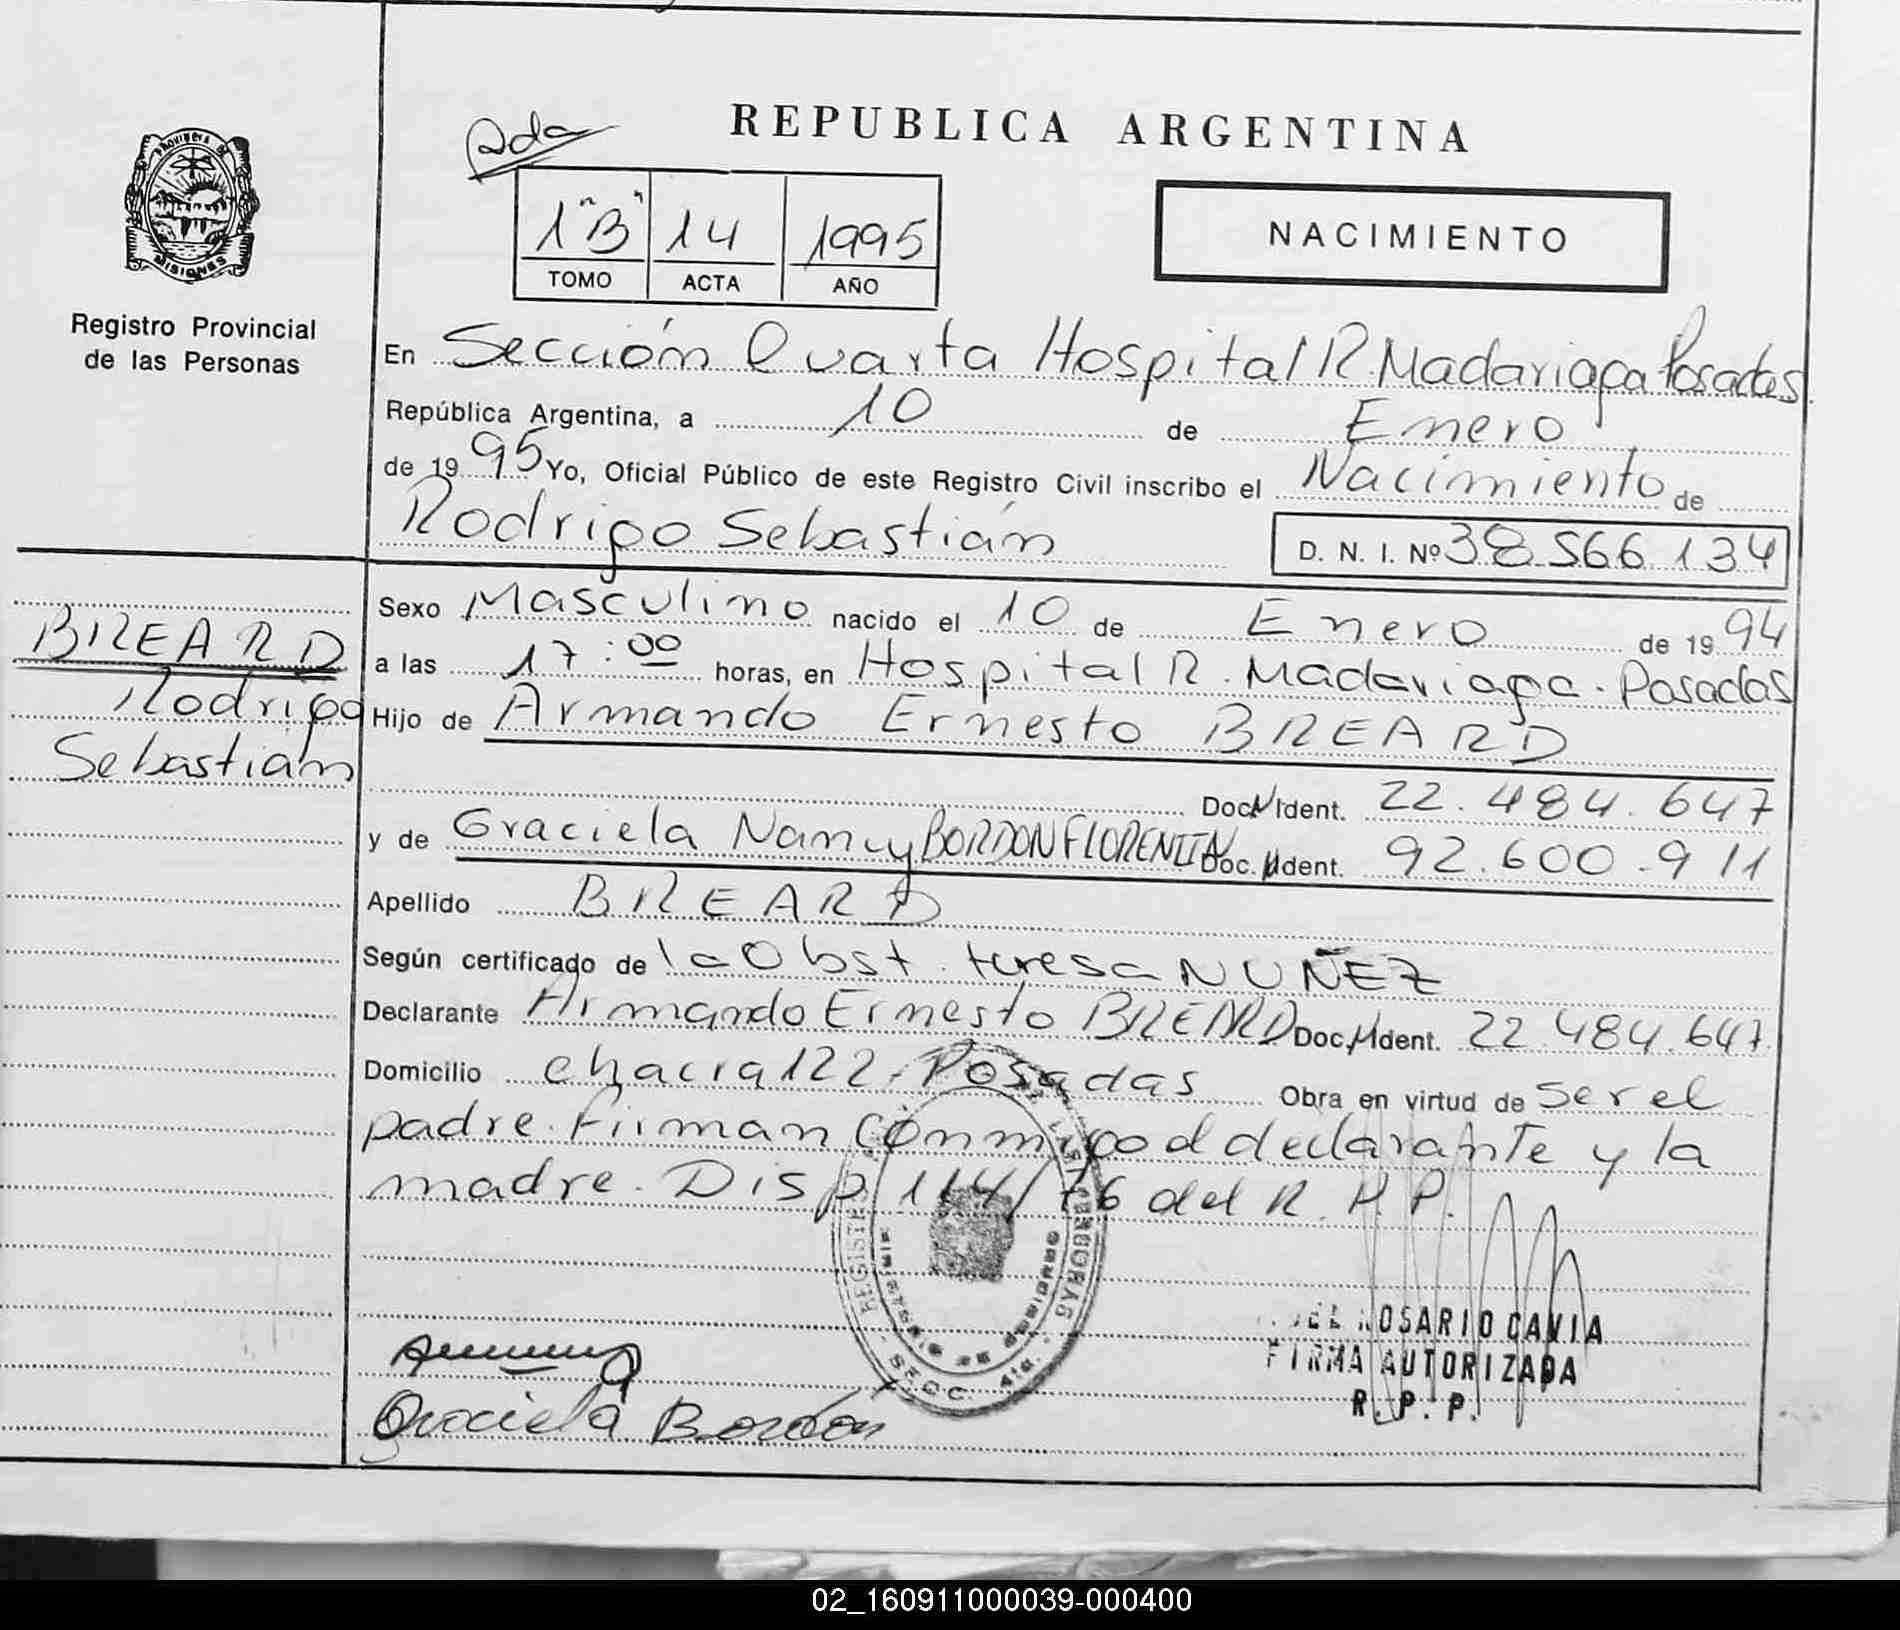 REPUBLICA ARGENTINA
1"B" 14 1995
TOMO ACTA AÑO
NACIMIENTO
MISIONES
Registro Provincial
de las Personas
En Sección Cuarta Hospital R. Madariaga Posadas
República Argentina, a 10 de Enero
de 1995 Yo, Oficial Público de este Registro Civil inscribo el Nacimiento de
Rodrigo Sebastián D. N. I. Nº 38.566.134
BREARD
Rodrigo
Sebastián
Sexo Masculino nacido el 10 de Enero de 1994
a las 17:00 horas, en Hospital R. Madariaga. Posadas
Hijo de Armando Ernesto BREARD
Doc. N. Ident. 22.484.647
y de Graciela Nancy BORDON FLORENTIN Doc. N. Ident. 92.600.911
Apellido BREARD
Según certificado de la Obst. teresa NUÑEZ
Declarante Armando Ernesto BREARD Doc. N. Ident. 22.484.647
Domicilio chacra 122. Posadas Obra en virtud de ser el
padre. Firman conmigo el declarante y la
madre. Disp 114/76 del R. P. P.
ROSARIO CAVIA
FIRMA AUTORIZADA
R. P. P.
Graciela Bordón
SECC. 4ta.
02_160911000039-000400